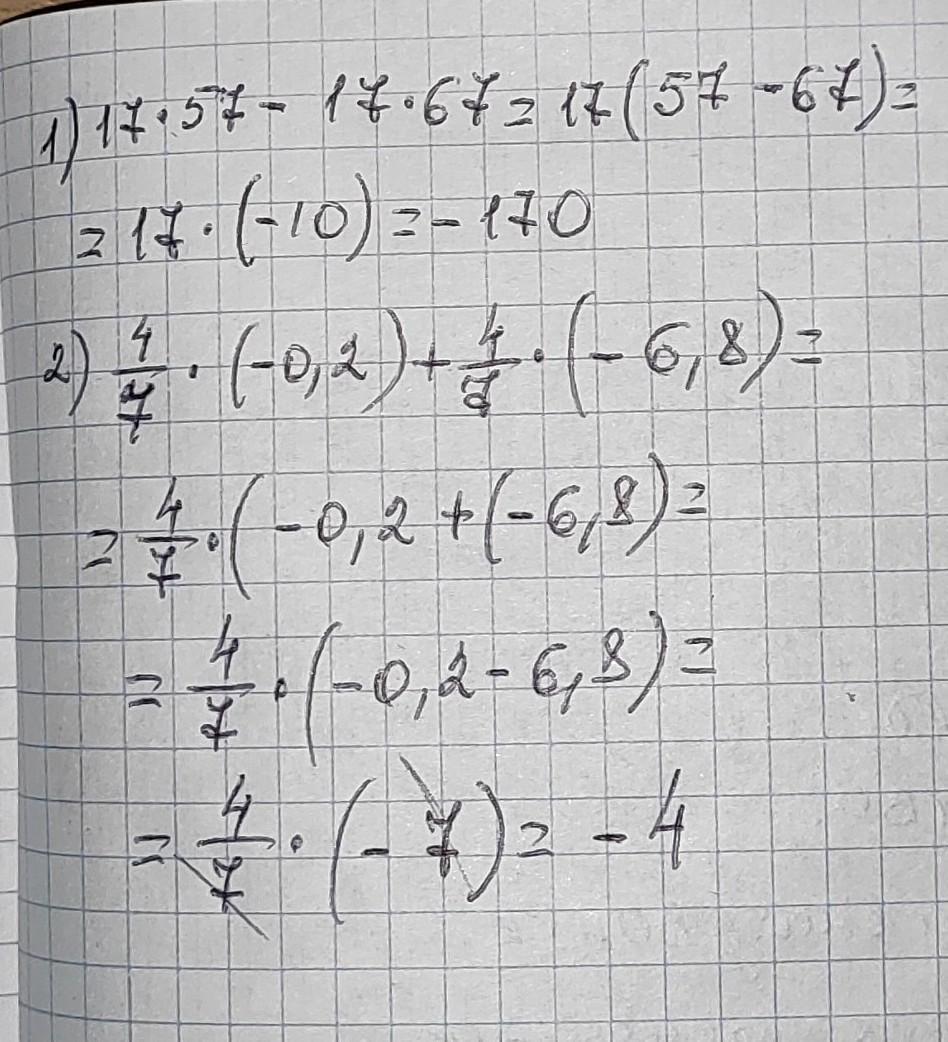 1) 17·57 - 17·67 = 17(57 - 67) =
= 17·(-10) = -170
2) 4/7 · (-0,2) + 4/7 · (-6,8) =
= 4/7 · (-0,2 + (-6,8) =
= 4/7 · (-0,2 - 6,8) =
= 4/7 · (-7) = -4